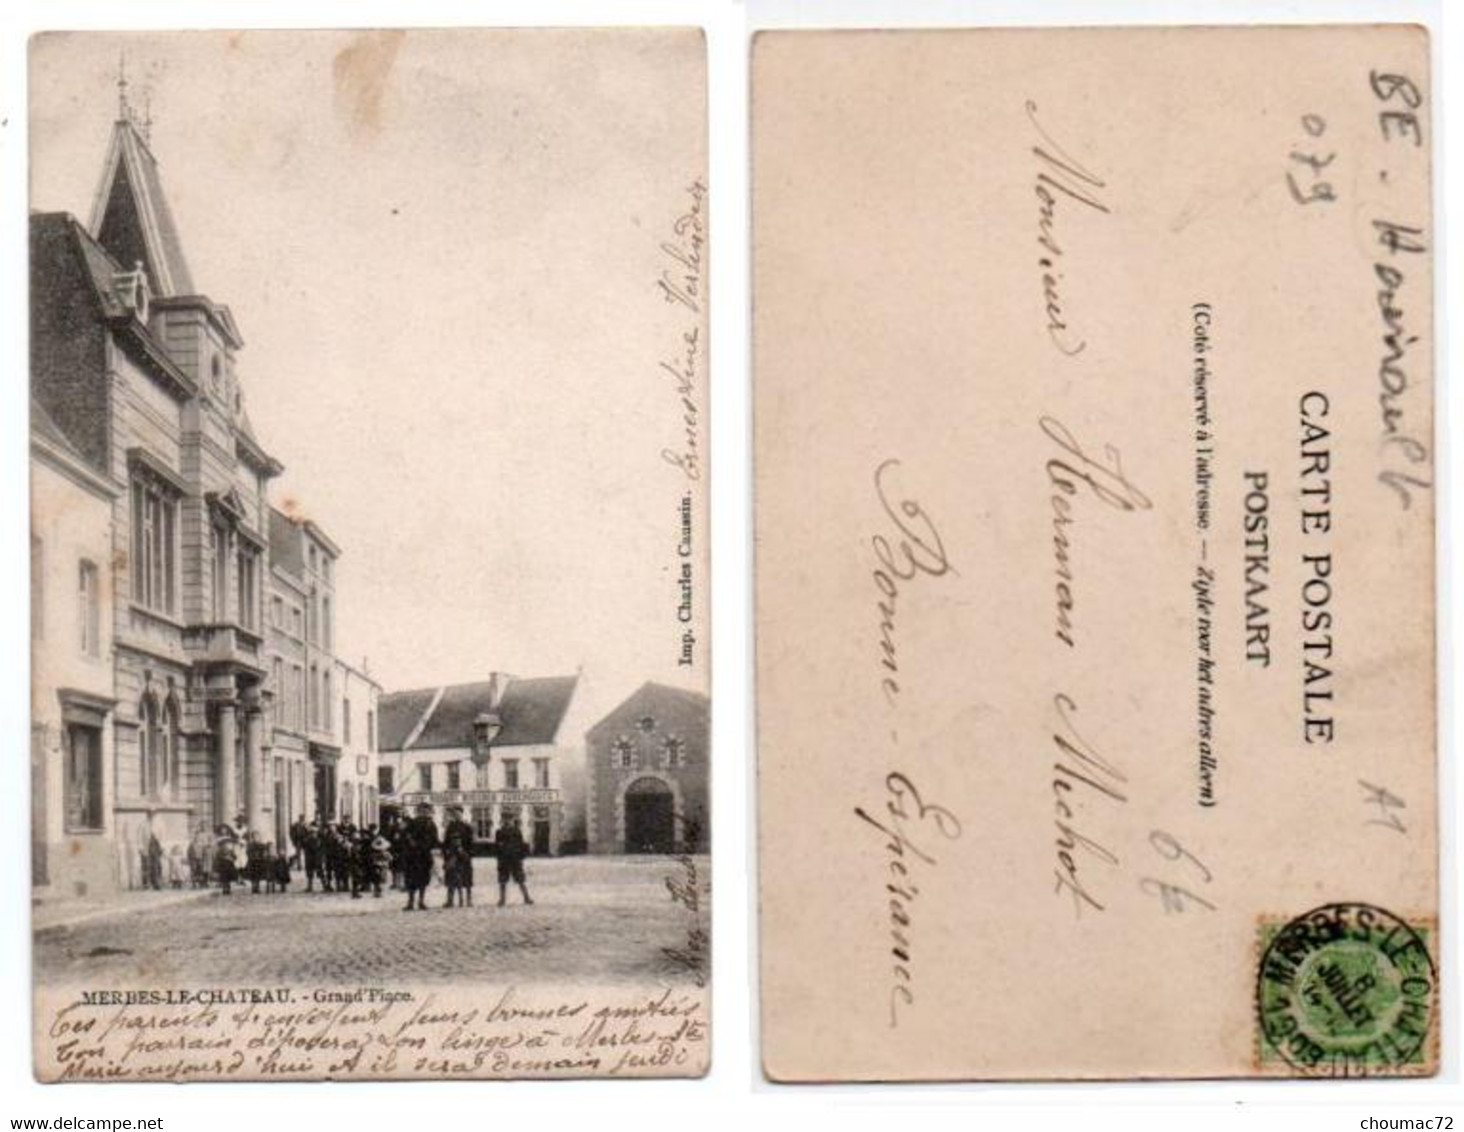 Ernestine Verlinden
Imp. Charles Caussin.
MERBES-LE-CHATEAU. - Grand'Place.
Tes parents t'envoient leurs bonnes amitiés
Ton parrain déposera ton linge à Merbes-Ste
Marie aujourd'hui et il sera demain jeudi
BE. Hainault
079
CARTE POSTALE
POSTKAART
(Coté réservé à l'adresse. — Zijde voor het adres alleen)
A1
6 f
Monsieur Herman Michot
Bonne-Espérance
MERBES-LE-CHATEAU
8
JUILLET
1903
choumac72